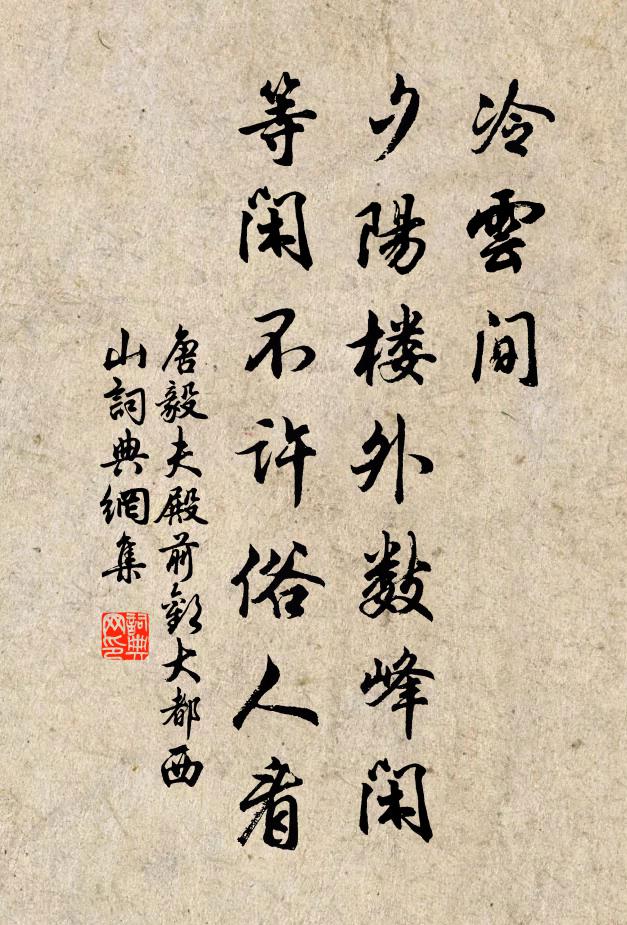 冷雲間
夕陽楼外数峰闲
等闲不许俗人看
唐毅夫殿前歡大都西
山詞典網集
詞典
网印